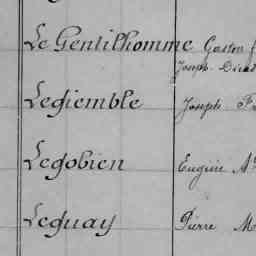 Le Gentilhomme Gaston
Joseph
Legiemble Joseph
Legobien Eugène
Leguay Pierre